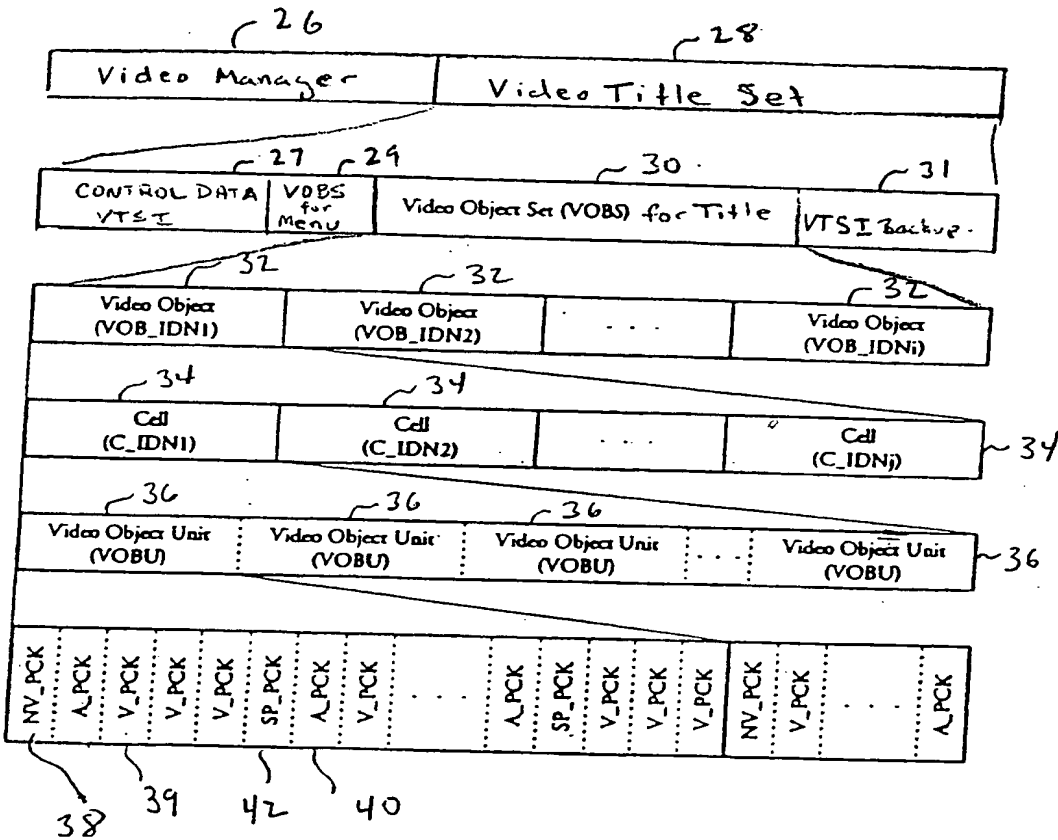 26
28
Video Manager
Video Title Set
27
29
30
31
CONTROL DATA
VTSI
VOBS
for
Menu
Video Object Set (VOBS) for Title
VTSI Backup.
32
32
32
Video Object
(VOB_IDN1)
Video Object
(VOB_IDN2)
. . .
Video Object
(VOB_IDNi)
34
34
Cell
(C_IDN1)
Cell
(C_IDN2)
. . .
Cell
(C_IDNj)
34
36
36
36
Video Object Unit
(VOBU)
Video Object Unit
(VOBU)
Video Object Unit
(VOBU)
. . .
Video Object Unit
(VOBU)
36
NV_PCK
A_PCK
V_PCK
V_PCK
V_PCK
SP_PCK
A_PCK
V_PCK
. . . .
A_PCK
SP_PCK
V_PCK
V_PCK
V_PCK
NV_PCK
V_PCK
. . . .
A_PCK
38
39
42
40